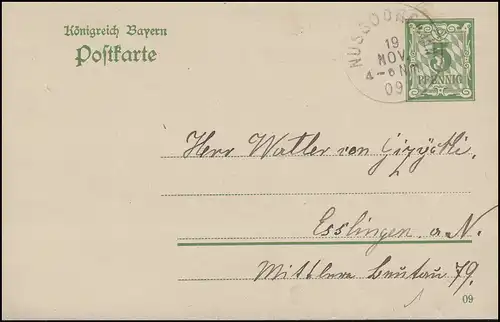 Königreich Bayern
Postkarte
NUSSDORF
19
NOV
4-6 NM
09
5
PFENNIG
Herr Walter von Gizycki.
Esslingen a. N.
Mittlere Beutau 79.
09